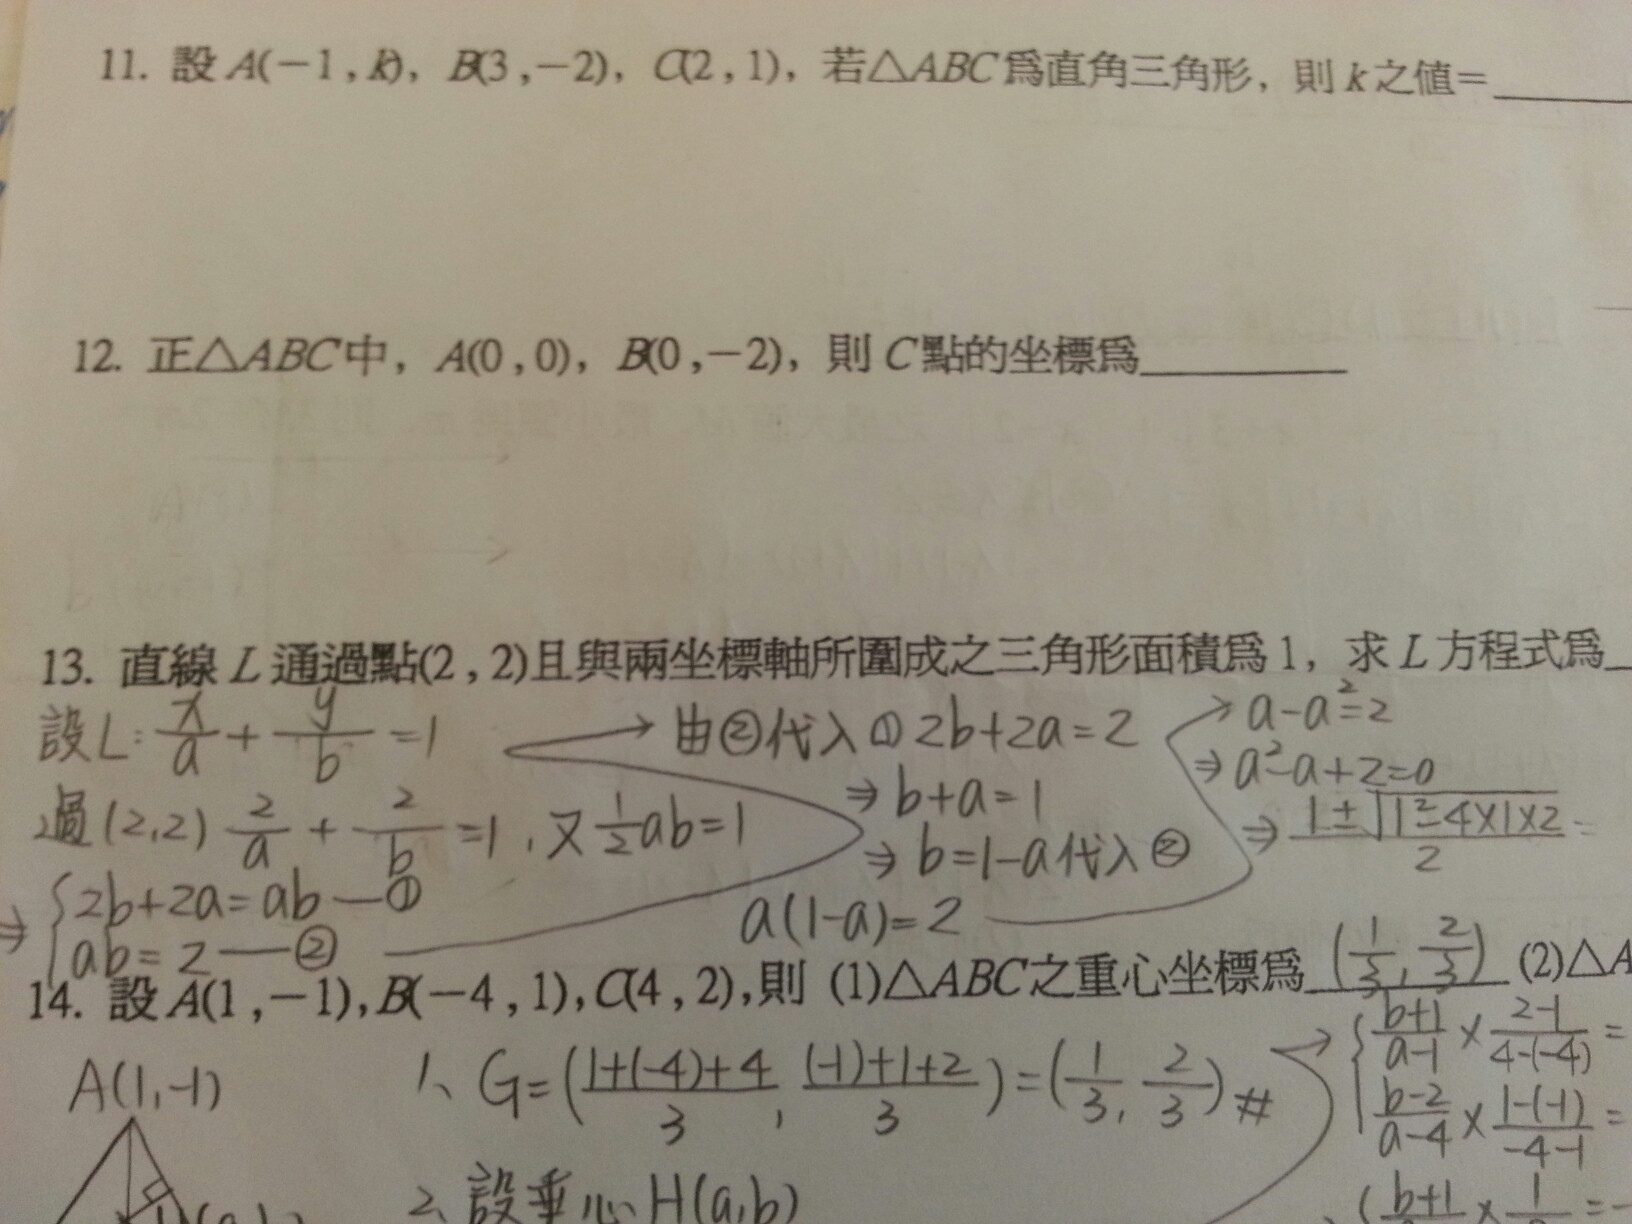 11. 設 A(−1 , k), B(3 , −2), C(2 , 1), 若△ABC 為直角三角形, 則 k 之值=
12. 正△ABC 中, A(0 , 0), B(0 , −2), 則 C 點的坐標為
13. 直線 L 通過點(2 , 2)且與兩坐標軸所圍成之三角形面積為 1, 求 L 方程式為
設L: x/a + y/b =1
過(2,2) 2/a + 2/b =1, 又 1/2 ab=1
⇒ { 2b+2a=ab —①
ab=2 —②
由②代入① 2b+2a=2
⇒ b+a=1
⇒ b=1-a代入②
a(1-a)=2
a-a²=2
⇒ a²-a+2=0
⇒ (1±√(1²-4×1×2))/2 =
14. 設 A(1 , −1), B(−4 , 1), C(4 , 2), 則 (1)△ABC 之重心坐標為 (1/3, 2/3) (2)△A
A(1,-1)
1、G=((1+(-4)+4)/3, ((-1)+1+2)/3)=(1/3, 2/3)#
2、設垂心H(a,b)
{ (b+1)/(a-1) × (2-1)/(4-(-4)) =
(b-2)/(a-4) × (1-(-1))/(-4-1) =